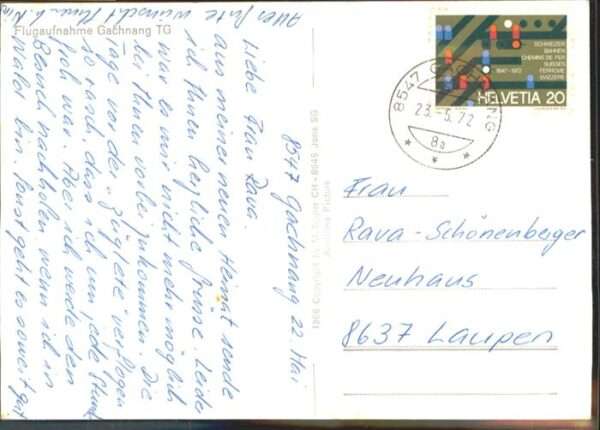 Flugaufnahme Gachnang TG
8547 Gachnang 22. Mai
Liebe Frau Rava.
Aus meiner neuen Heimat sende
ich Ihnen herzliche Grüsse. Leider
war es mir nicht mehr möglich
bei Ihnen vorbei zukommen. Die
Tage vor der "Züglete" verflogen
so rasch, dass ich um jede Stunde
froh war. Aber ich werde den
Besuch nachholen wenn ich in
Wald bin. Sonst geht es soweit gut
Alles Gute wünscht Ihnen
8547 GACHNANG
23.-5.72
8a
SCHWEIZER
BAHNEN
CHEMINS DE FER
SUISSES
FERROVIE
SVIZZERE
1847-1972
HELVETIA 20
Frau
Rava-Schönenberger
Neuhaus
8637 Laupen